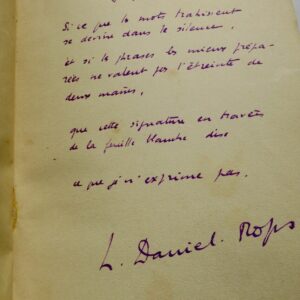 Si ce que les mots trahissent
se devine dans le silence,
et si les phrases les mieux prépa-
rées ne valent pas l'étreinte de
deux mains,
que cette signature en travers
de la feuille blanche dise
ce que je n'exprime pas.
L. Daniel. Rops